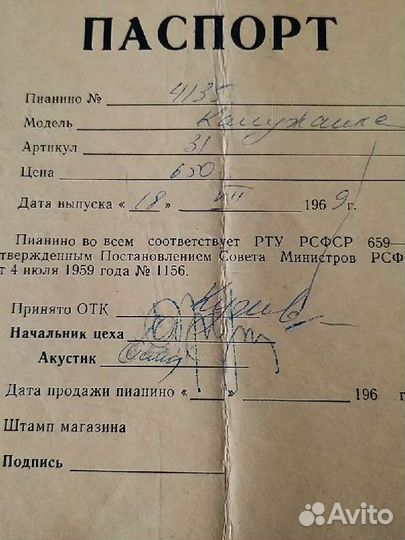 ПАСПОРТ
Пианино № 4135
Модель Калужанка
Артикул 31
Цена 650
Дата выпуска « 18 » VII 1969 г.
Пианино во всем соответствует РТУ РСФСР 659—
твержденным Постановлением Совета Министров РСФ
т 4 июля 1959 года № 1156.
Принято ОТК
Начальник цеха
Акустик
Дата продажи пианино « » 196 г
Штамп магазина
Подпись
Avito